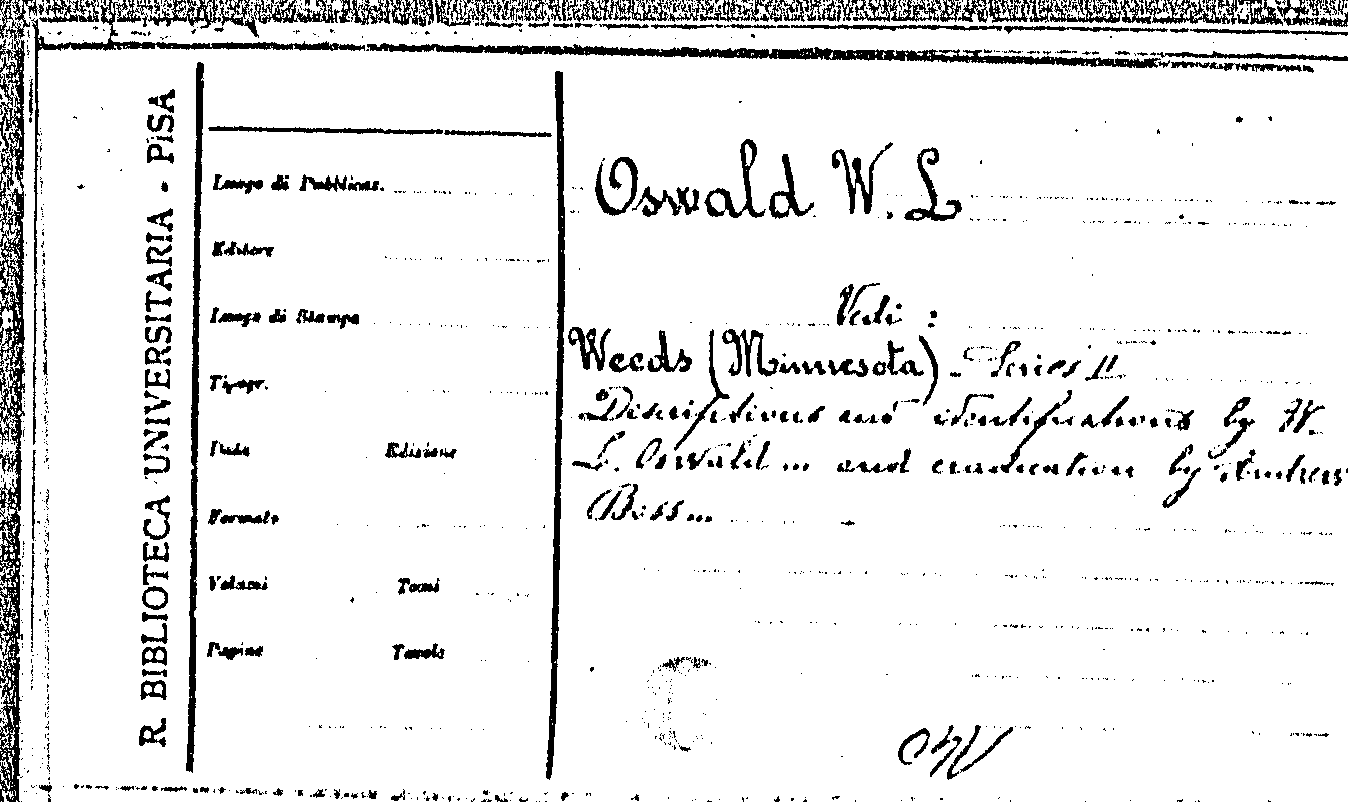 R. BIBLIOTECA UNIVERSITARIA - PISA
Luogo di Pubblicaz.
Editore
Luogo di Stampa
Tipogr.
Data Edizione
Formato
Volumi Tomi
Pagine Tavole
Oswald W. L
Vedi :
Weeds (Minnesota) - Series II
Descriptions and identifications by W.
L. Oswald ... and eradication by Andrew
Boss ...